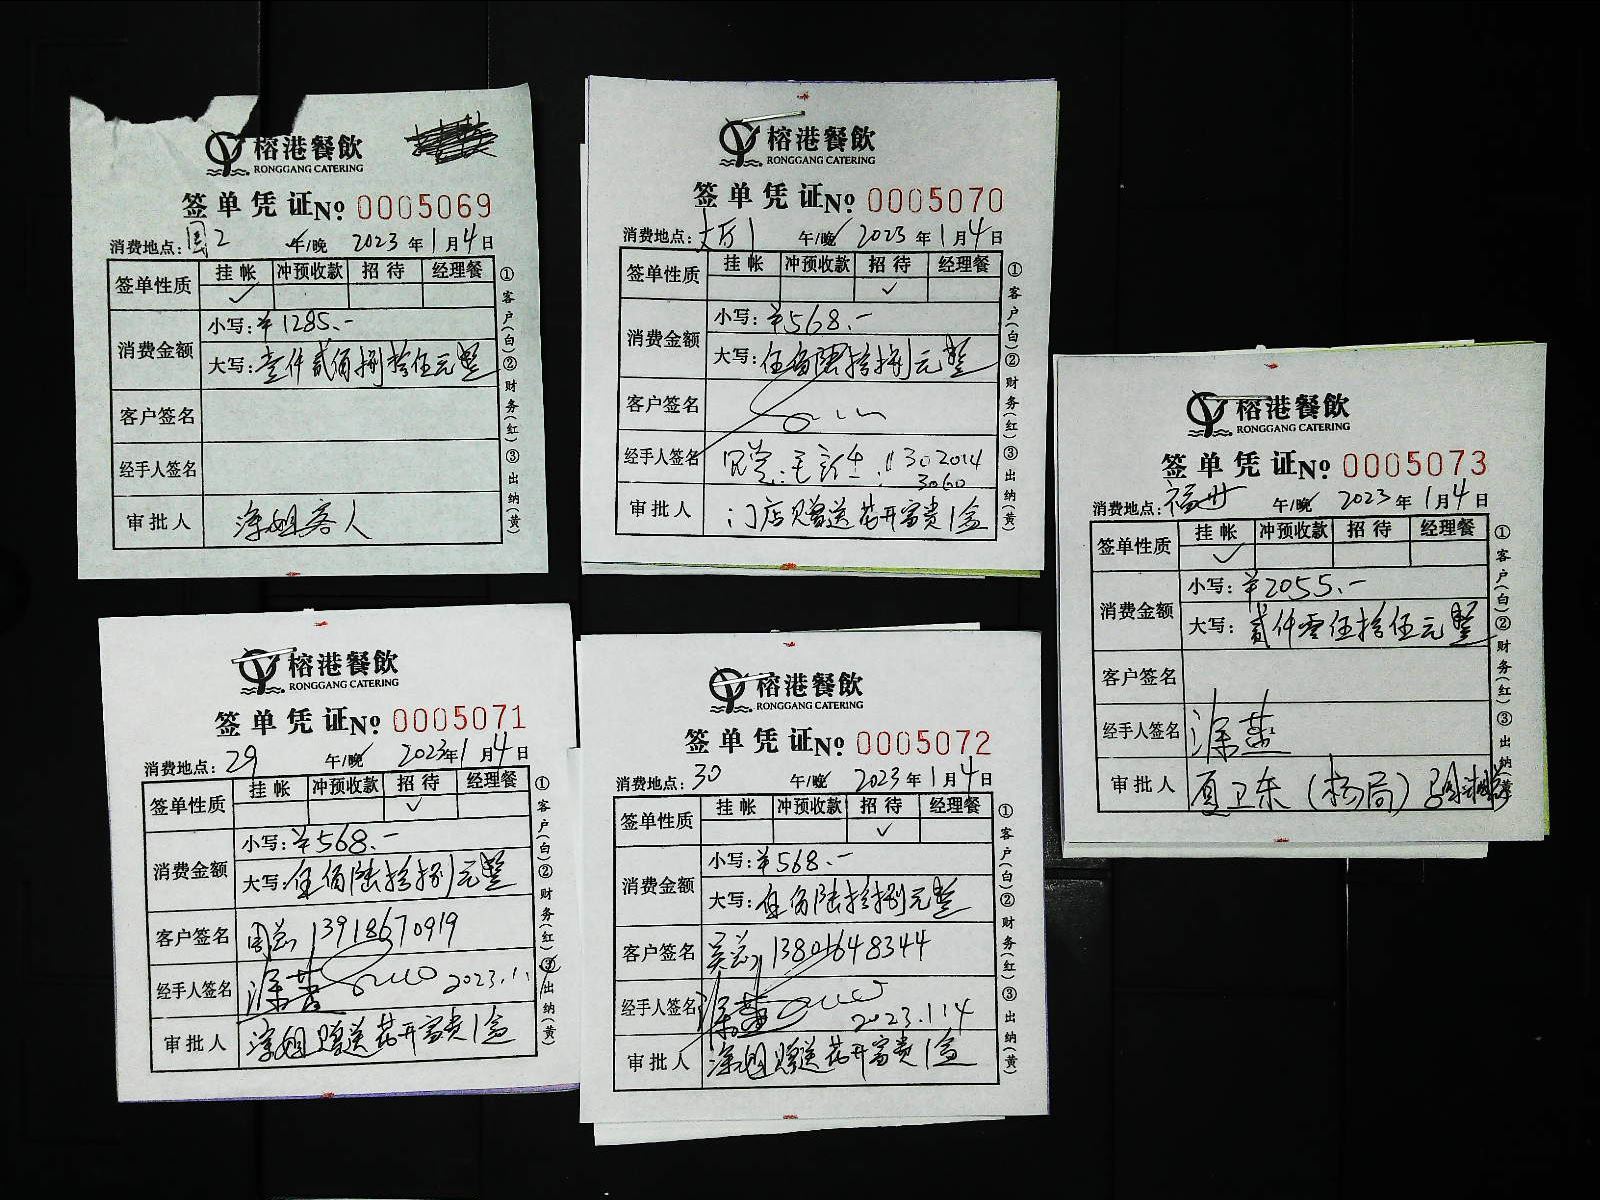 榕港餐飲
RONGGANG CATERING
签单凭证№ 0005069
消费地点: 国2 午/晚 2023年1月4日
签单性质 挂帐 冲预收款 招待 经理餐
✓
消费金额 小写: ¥1285.-
大写: 壹仟贰佰捌拾伍元整
客户签名
经手人签名
审批人 涂姐客人
①客户(白)②财务(红)③出纳(黄)
榕港餐飲
RONGGANG CATERING
签单凭证№ 0005070
消费地点: 大厅1 午/晚 2023年1月4日
签单性质 挂帐 冲预收款 招待 经理餐
✓
消费金额 小写: ¥568.-
大写: 伍佰陆拾捌元整
客户签名
经手人签名
审批人 门店赠送花开富贵1盒
①客户(白)②财务(红)③出纳(黄)
榕港餐飲
RONGGANG CATERING
签单凭证№ 0005071
消费地点: 29 午/晚 2023年1月4日
签单性质 挂帐 冲预收款 招待 经理餐
✓
消费金额 小写: ¥568.-
大写: 伍佰陆拾捌元整
客户签名 周总 13918670919
经手人签名 涂燕 2023.1.
审批人 涂姐赠送花开富贵1盒
①客户(白)②财务(红)③出纳(黄)
榕港餐飲
RONGGANG CATERING
签单凭证№ 0005072
消费地点: 30 午/晚 2023年1月4日
签单性质 挂帐 冲预收款 招待 经理餐
✓
消费金额 小写: ¥568.-
大写: 伍佰陆拾捌元整
客户签名 吴总 13801648344
经手人签名 涂燕 2023.1.4
审批人 涂姐赠送花开富贵1盒
①客户(白)②财务(红)③出纳(黄)
榕港餐飲
RONGGANG CATERING
签单凭证№ 0005073
消费地点: 福州 午/晚 2023年1月4日
签单性质 挂帐 冲预收款 招待 经理餐
✓
消费金额 小写: ¥2055.-
大写: 贰仟零伍拾伍元整
客户签名
经手人签名 涂燕
审批人 夏卫东(杨局)
①客户(白)②财务(红)③出纳(黄)